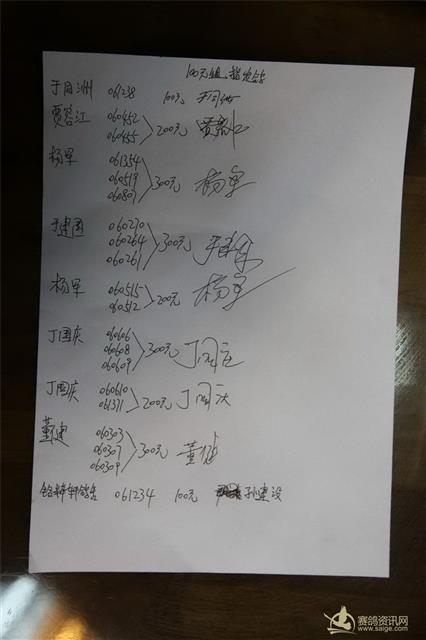 100元组 指定鸽
于同洲 061238 100元
贾容江 060452
060455 200元
杨军 061354
060519 300元 杨军
060807
于建国 060270
060264 300元
060261
杨军 060515 200元 杨军
060512
丁国庆 060606
060608 300元 丁国庆
060609
丁国庆 060610 200元 丁国庆
061371
董建 060303
060307 300元 董建
060309
061234 100元 孙建设
赛鸽资讯网
www.saige.com